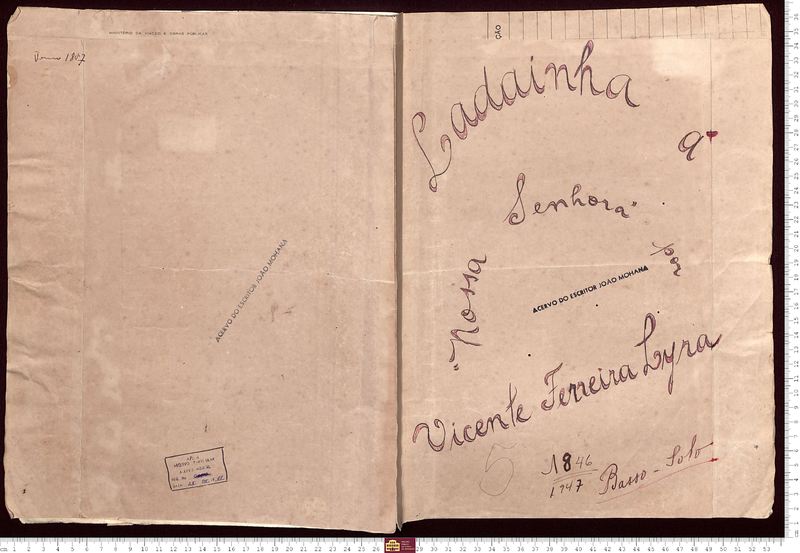 MINISTÉRIO DA VIAÇÃO E OBRAS PÚBLICAS
ACERVO DO ESCRITOR JOÃO MOHANA
ÇÃO
Ladainha
a
"Nossa
Senhora"
por
ACERVO DO ESCRITOR JOÃO MOHANA
Vicente Ferreira Lyra
5
1846
1947
Basso-Solo